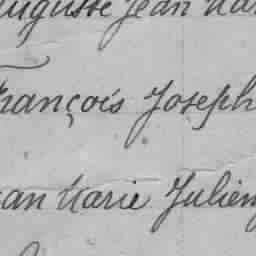 Auguste Jean Ma
François Joseph
ean Marie Julien